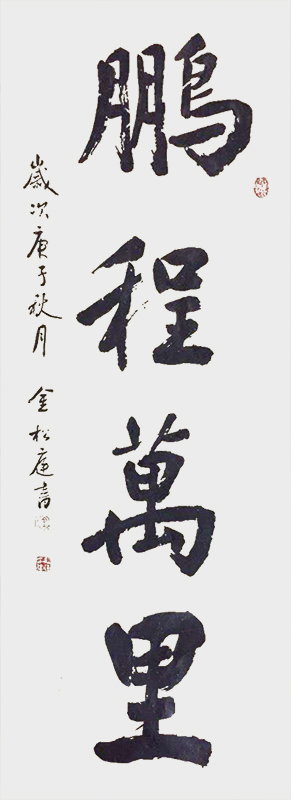 鵬程萬里
歲次庚子秋月 金松庭書